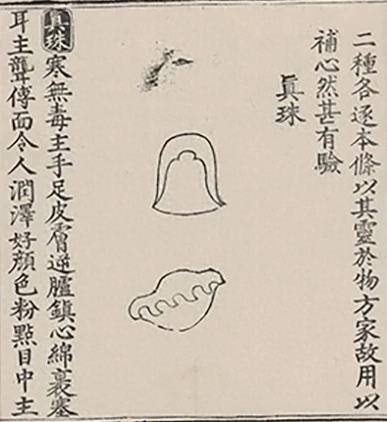 二種各逐本條以其靈於物方家故用以
補心然甚有驗
眞珠
眞珠寒無毒主手足皮膚逆臚鎮心綿裹塞
耳主聾傅面令人潤澤好顔色粉點目中主